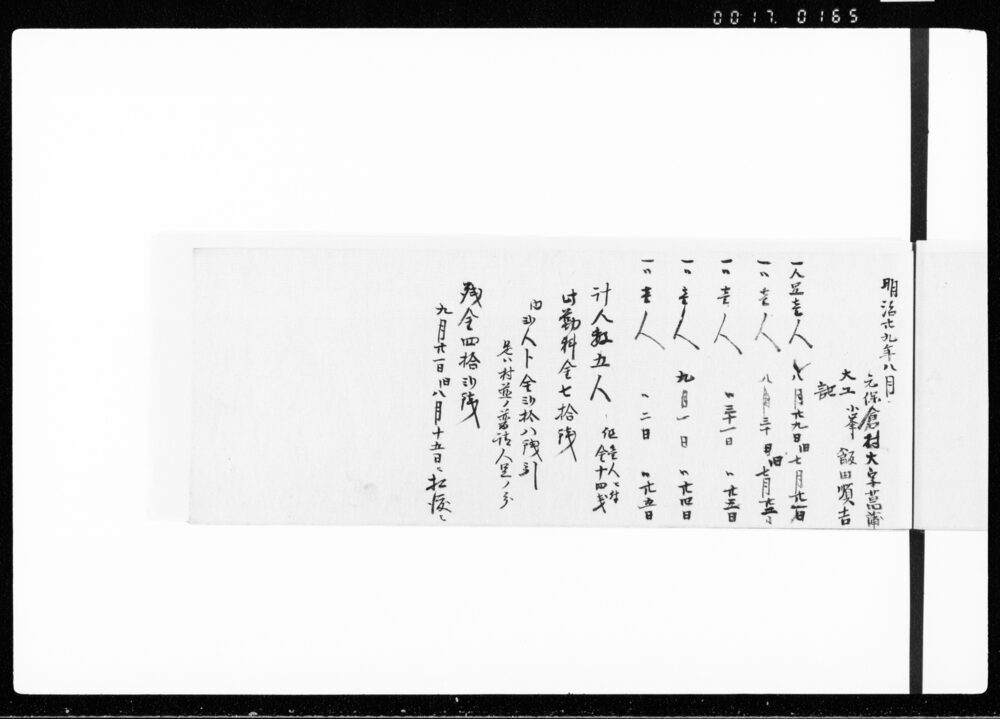 0017 0165
明治廿九年八月
元保倉村大字菖蒲
大工 小峯 飯田順吉
記
一人足壱人 八月廿九日旧七月廿一日
一〃壱人 八月三十日旧七月廿二日
一〃壱人 〃三十一日 〃廿三日
一〃壱人 九月一日 〃廿四日
一〃壱人 〃二日 〃廿五日
計人数五人 但壱人ニ付
金十四銭
此勤料金七拾銭
内弐人ト金弐拾八銭引
是ハ村並ノ普請人足ノ分
残金四拾弐銭
九月廿一日旧八月十五日ニ払済ミ